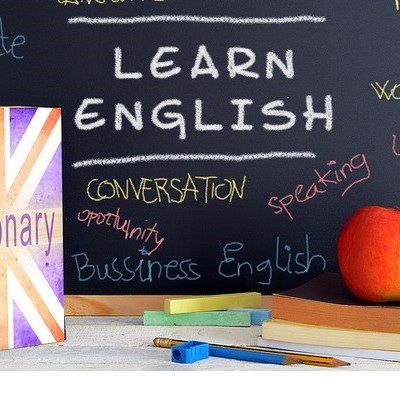 LEARN
ENGLISH
CONVERSATION
speaking
oportunity
to
Bussiness English
onary